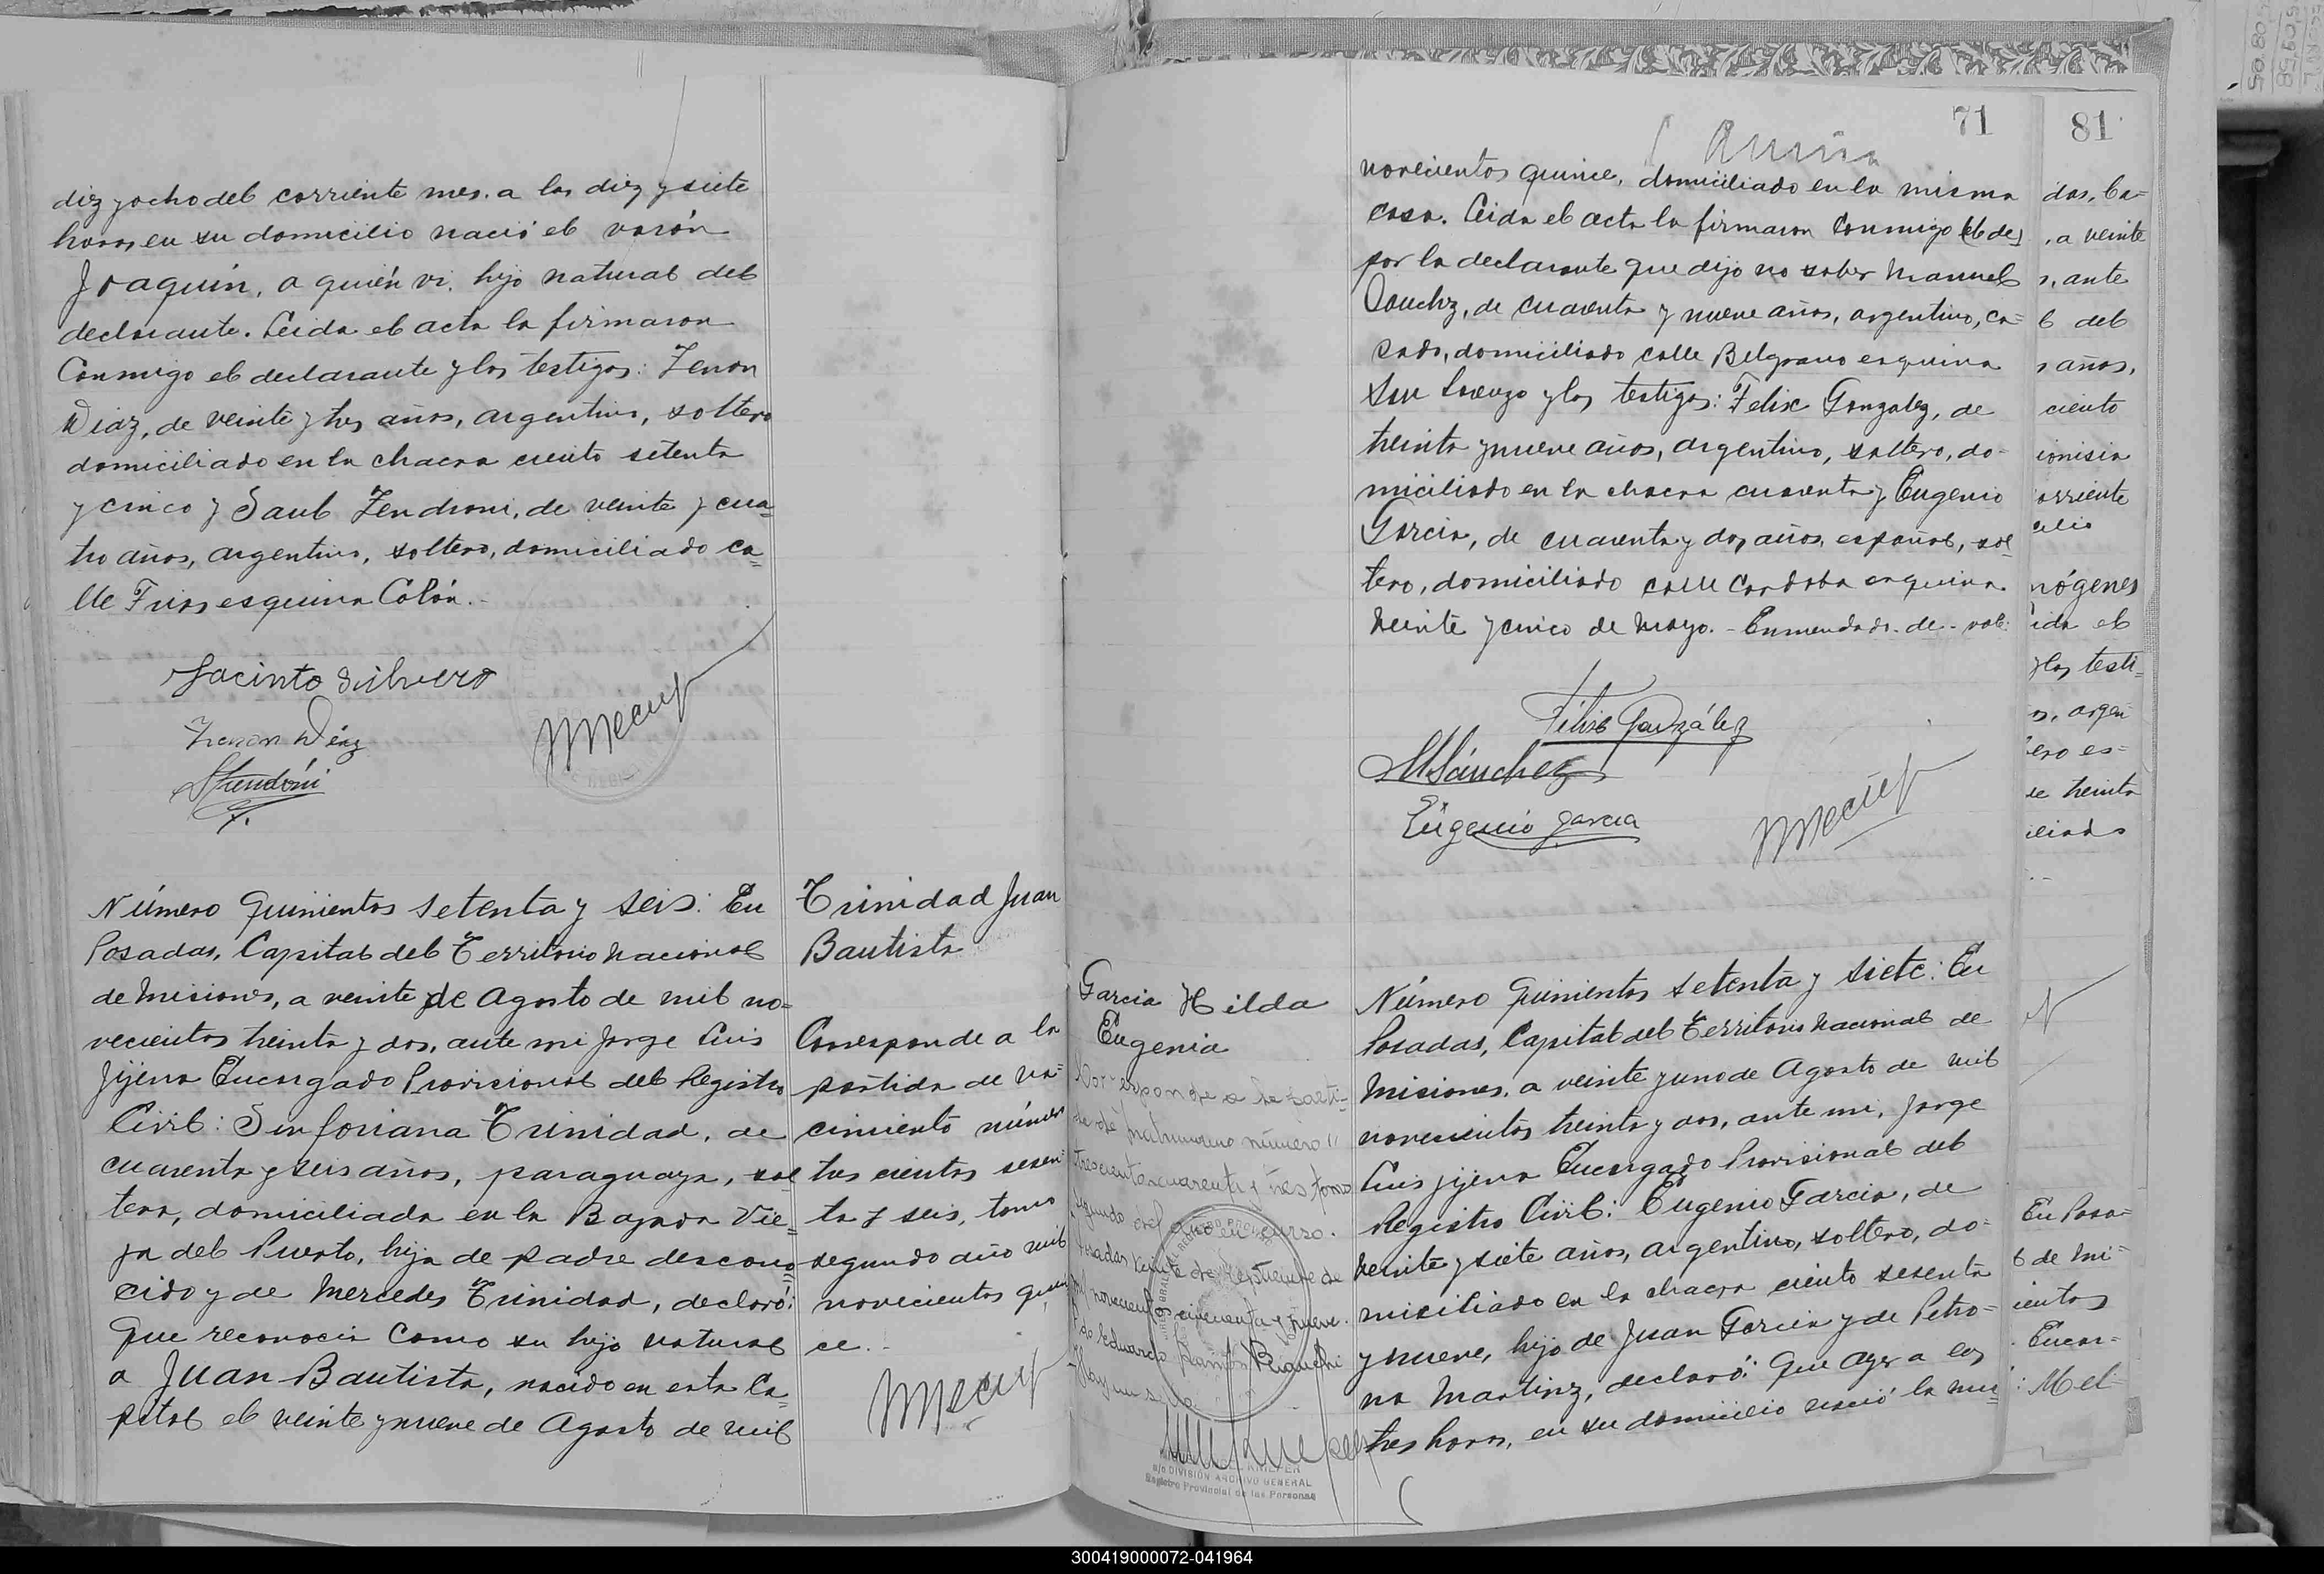 diez y ocho del corriente mes, a las diez y siete
horas en su domicilio nació el varón
Joaquín, a quién vi, hijo natural del
declarante. Leida el acta la firmaron
Conmigo el declarante y los testigos: Zenon
Diaz, de veinte y tres años, argentino, soltero
domiciliado en la chacra ciento setenta
y cinco y Saul Zendroni, de veinte y cua=
tro años, argentino, soltero, domiciliado ca=
lle Frias esquina Colón.-
Jacinto Silvero
Zenon Diaz
SZendróni
Número quinientos setenta y seis: En
Posadas, Capital del Territorio Nacional
de Misiones, a veinte de Agosto de mil no=
vecientos treinta y dos, ante mi Jorge Luis
Jijena Encargado Provisional del Registro
Civil: Sinforiana Trinidad, de
cuarenta y seis años, paraguaya, sol
tera, domiciliada en la Bajada Vie=
ja del Puerto, hija de padre descono=
cido y de Mercedes Trinidad, declaró:
Que reconocia como su hijo natural
a Juan Bautista, nacido en esta Ca=
pital el veinte y nueve de Agosto de mil
Trinidad Juan
Bautista
Corresponde a la
partida de na=
cimiento número
tres cientos sesen=
ta y seis, tomo
segundo año mil
novecientos quin
ce.-
71
novecientos quince, domiciliado en la misma
casa. Leida el acta la firmaron Conmigo
por la declarante que dijo no saber Manuel
Sanchez, de cuarenta y nueve años, argentino, ca=
sado, domiciliado calle Belgrano esquina
San Lorenzo y los testigos: Felix Gonzalez, de
treinta y nueve años, argentino, soltero, do=
miciliado en la chacra cuarenta y Eugenio
Garcia, de cuarenta y dos años, español, sol=
tero, domiciliado calle Cordoba esquina
Veinte y cinco de Mayo.- Enmendado- de- vale
Félix González
MSánchez
Eugenio Garcia
Garcia Hilda
Eugenia
Corresponde a la parti=
da de matrimonio número
trescientos cuarenta y tres tomo
segundo del año en curso.
Posadas, veinte de Septiembre de
mil novecientos cincuenta y nueve.
DIVISIÓN ARCHIVO GENERAL
Registro Provincial de las Personas
Número quinientos setenta y siete: En
Posadas, Capital del Territorio Nacional de
Misiones, a veinte y uno de Agosto de mil
novecientos treinta y dos, ante mi, Jorge
Luis Jijena Encargado Provisional del
Registro Civil: Eugenio Garcia, de
veinte y siete años, argentino, soltero, do=
miciliado en la chacra ciento sesenta
y nueve, hijo de Juan Garcia y de Petro=
na Martinez, declaró: Que ayer a las
tres horas, en su domicilio nació la mu=
81
das, Ca=
, a veinte
, ante
l del
años,
ciento
ionisia
orriente
cilio
nógenes
ida el
y los testi=
s, argen
ero es=
de treinta
iliado
En Posa=
l de Mi=
ientos
Encar=
: Mel
300419000072-041964